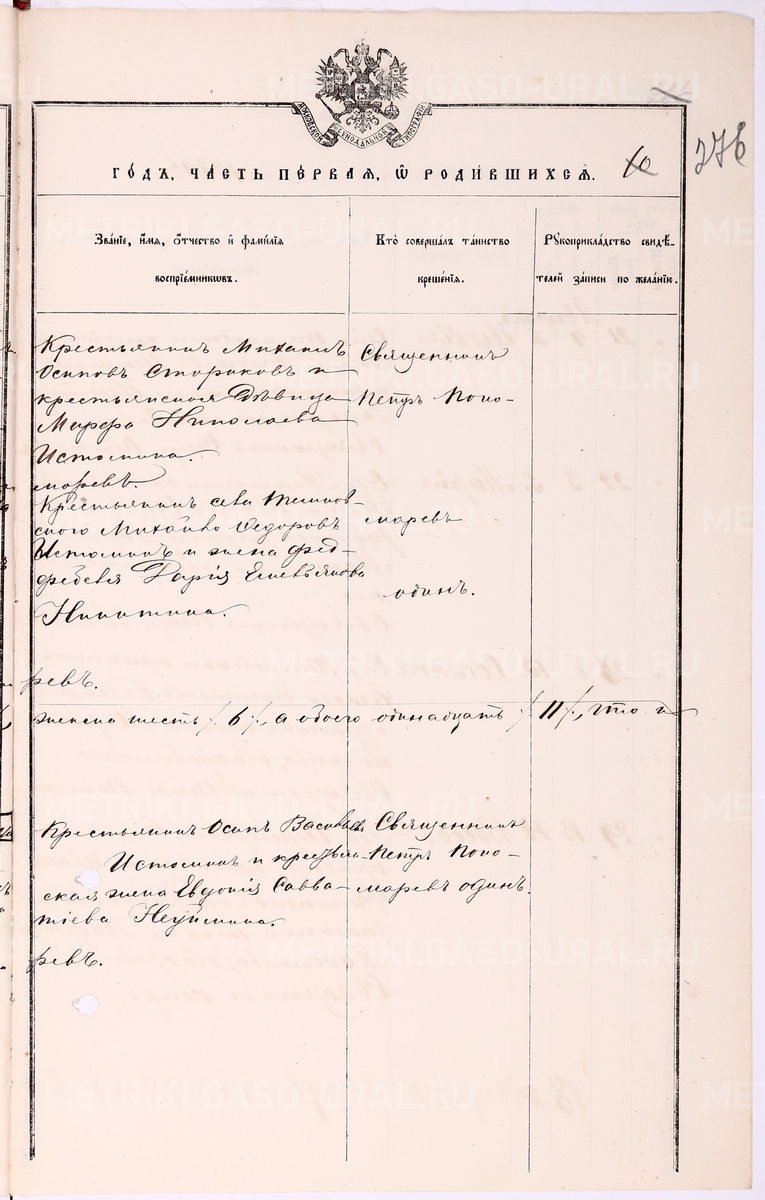 МОСКОВСКОЙ СѴНОДАЛЬНОЙ ТИПОГРАФІИ
ГОДЪ, ЧАСТЬ ПЕРВАЯ, Ѡ РОДИВШИХСЯ.
10
276
Званіе, имя, отчество и фамилія воспріемниковъ.
Кто совершалъ таинство крещенія.
Рукоприкладство свидѣтелей записи по желанію.
Крестьянинъ Михаилъ
Осиповъ Стариковъ и
крестьянская дѣвица
Марѳа Николаева
Истомина.
маревъ.
Священникъ
Петръ Поно-
Крестьянинъ села
Михайло Ѳедоровъ
Истоминъ и жена
Дарія Емельянова
Никитина.
маревъ
одинъ.
ревъ.
женска шесть /6/, а обоего одинадцать /11/, что и
Крестьянинъ Осипъ Васильевъ
Истоминъ и крестьян-
ская жена Евдокія Савва-
тіева Неуймина.
ревъ.
Священникъ
Петръ Поно-
маревъ одинъ.
METRIKI.GASO-URAL.RU